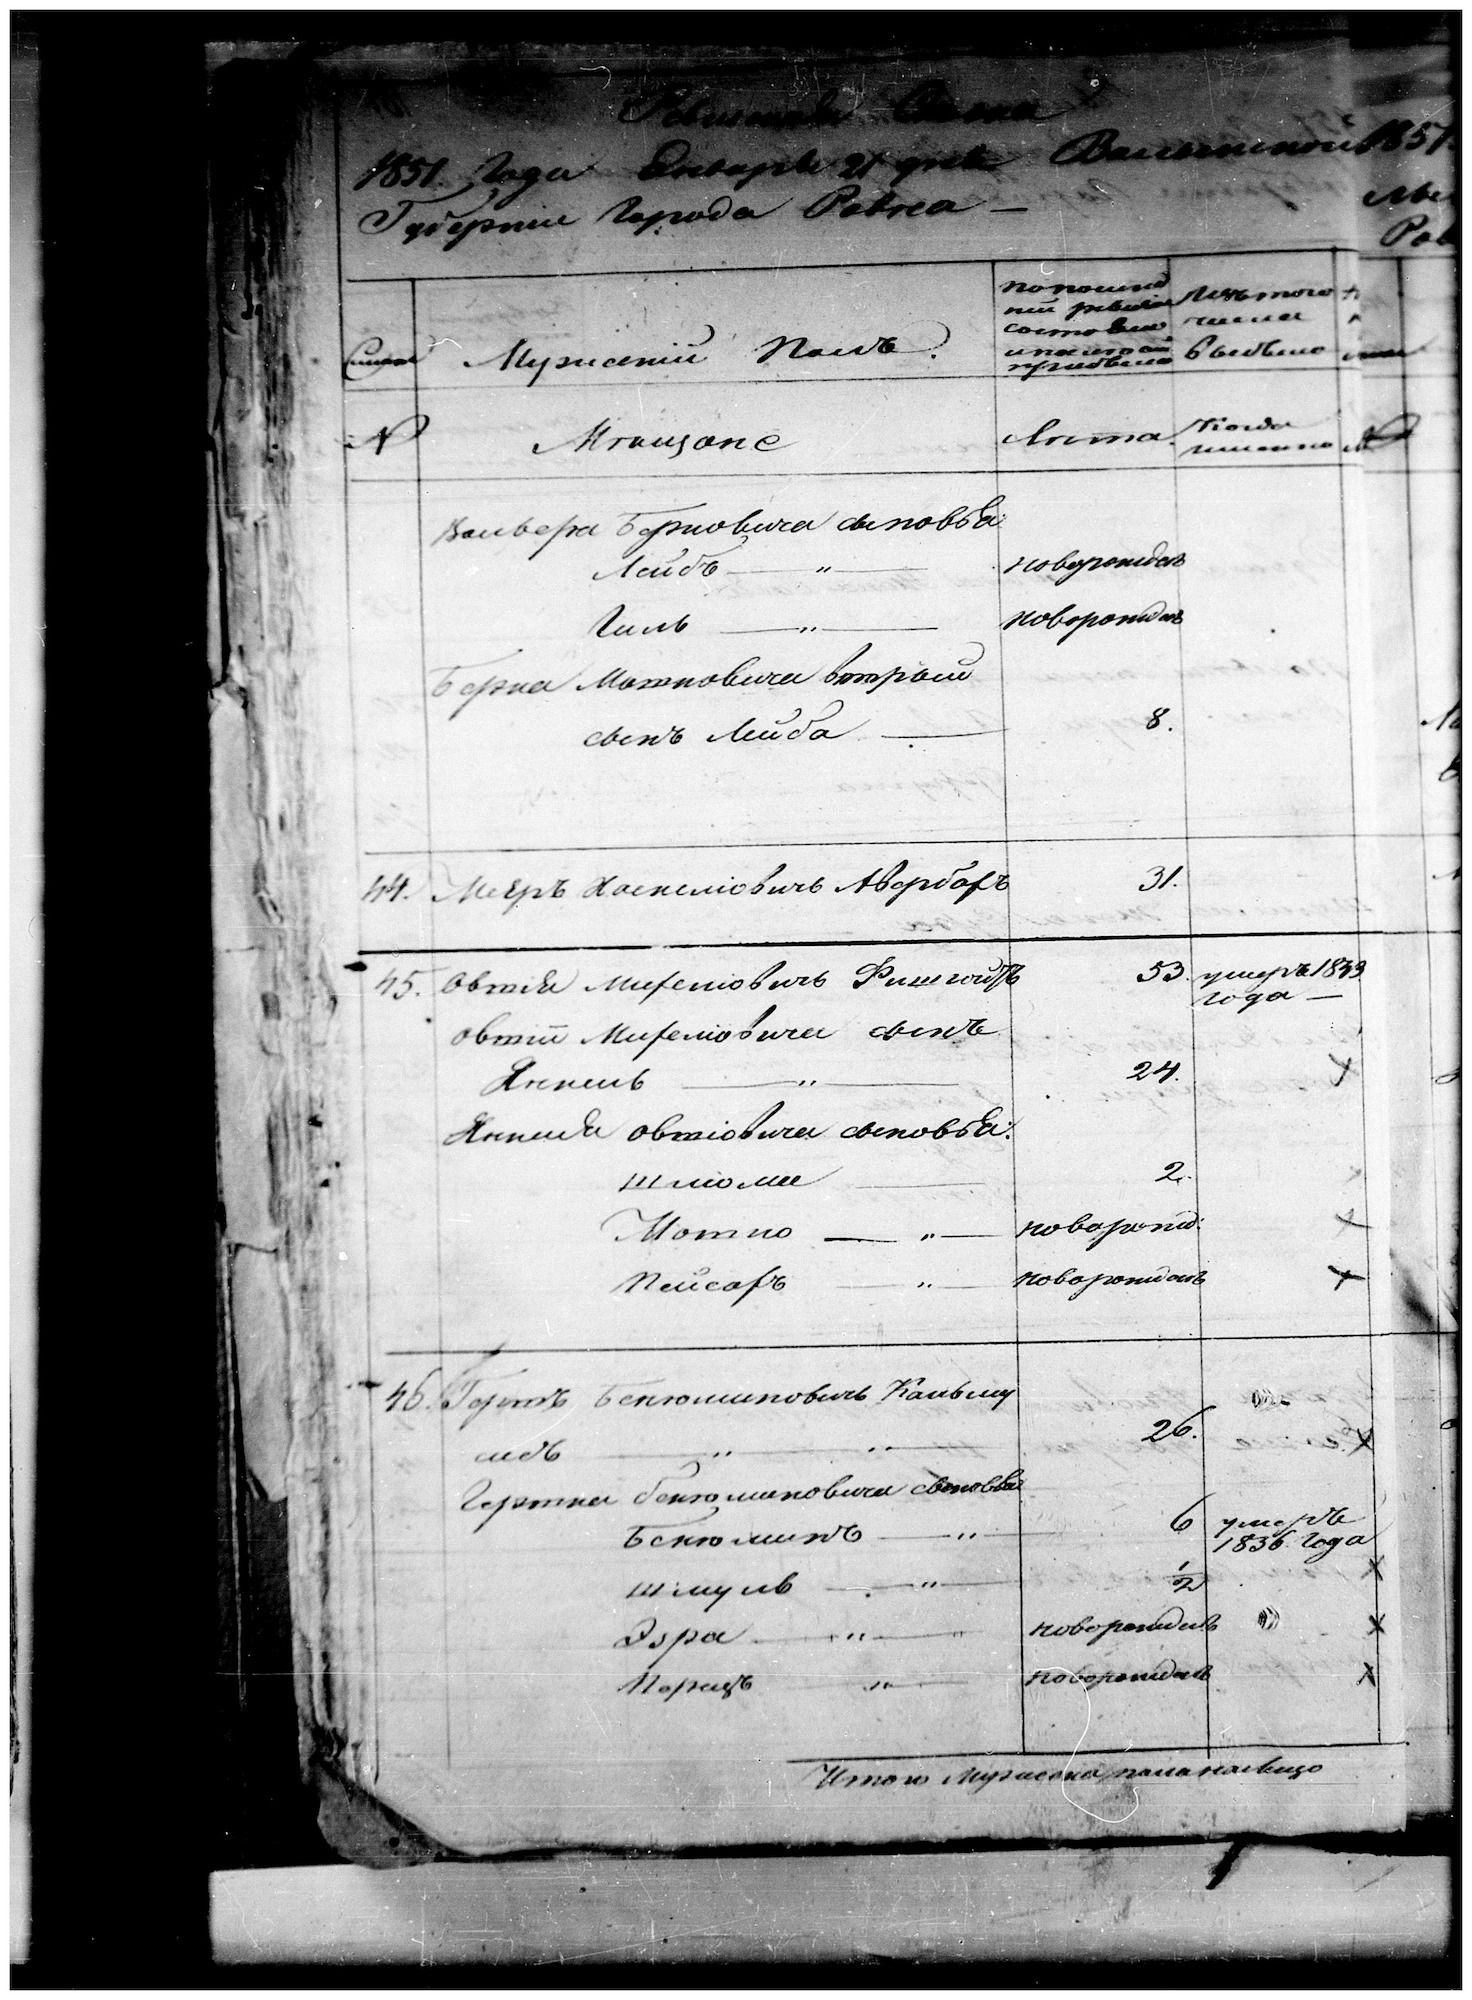 Ревизская Сказка
1851. Года Генваря 21 дня Волынской
Губернии Города Ровна —
Мужеский Полъ.
по последней ревизии состояло и после той прибыло
Изъ того числа выбыло
№ Мещане Лета. Когда именно
Вольфа Берковича сыновья
Лейбъ — „ — новорожден
Гиль — „ — новорожден
Берка Мошковича вторый
сынъ Лейба — 8.
44. Мееръ Хаскелiовичь Авербахъ 31.
45. Овшiя Михелiовичь 53. умеръ 1839
года —
Овшiи Михелiовича сынъ
Янкель — „ — 24.
Янкеля Овшiовича сыновья:
Шлiома — 2.
Мошко — „ — новорожд:
Пейсахъ — „ — новорожденъ
46. Гершъ Бенюминовичь
— „ — „ — 26.
Гершка Бенюминовича сыновья
Бенюминъ — „ — 6 умеръ
1836 года
Шмуль — „ — 1/2
Эзра — „ — новорожденъ
Перецъ — „ — новорожденъ
Итого Мужеска пола налицо